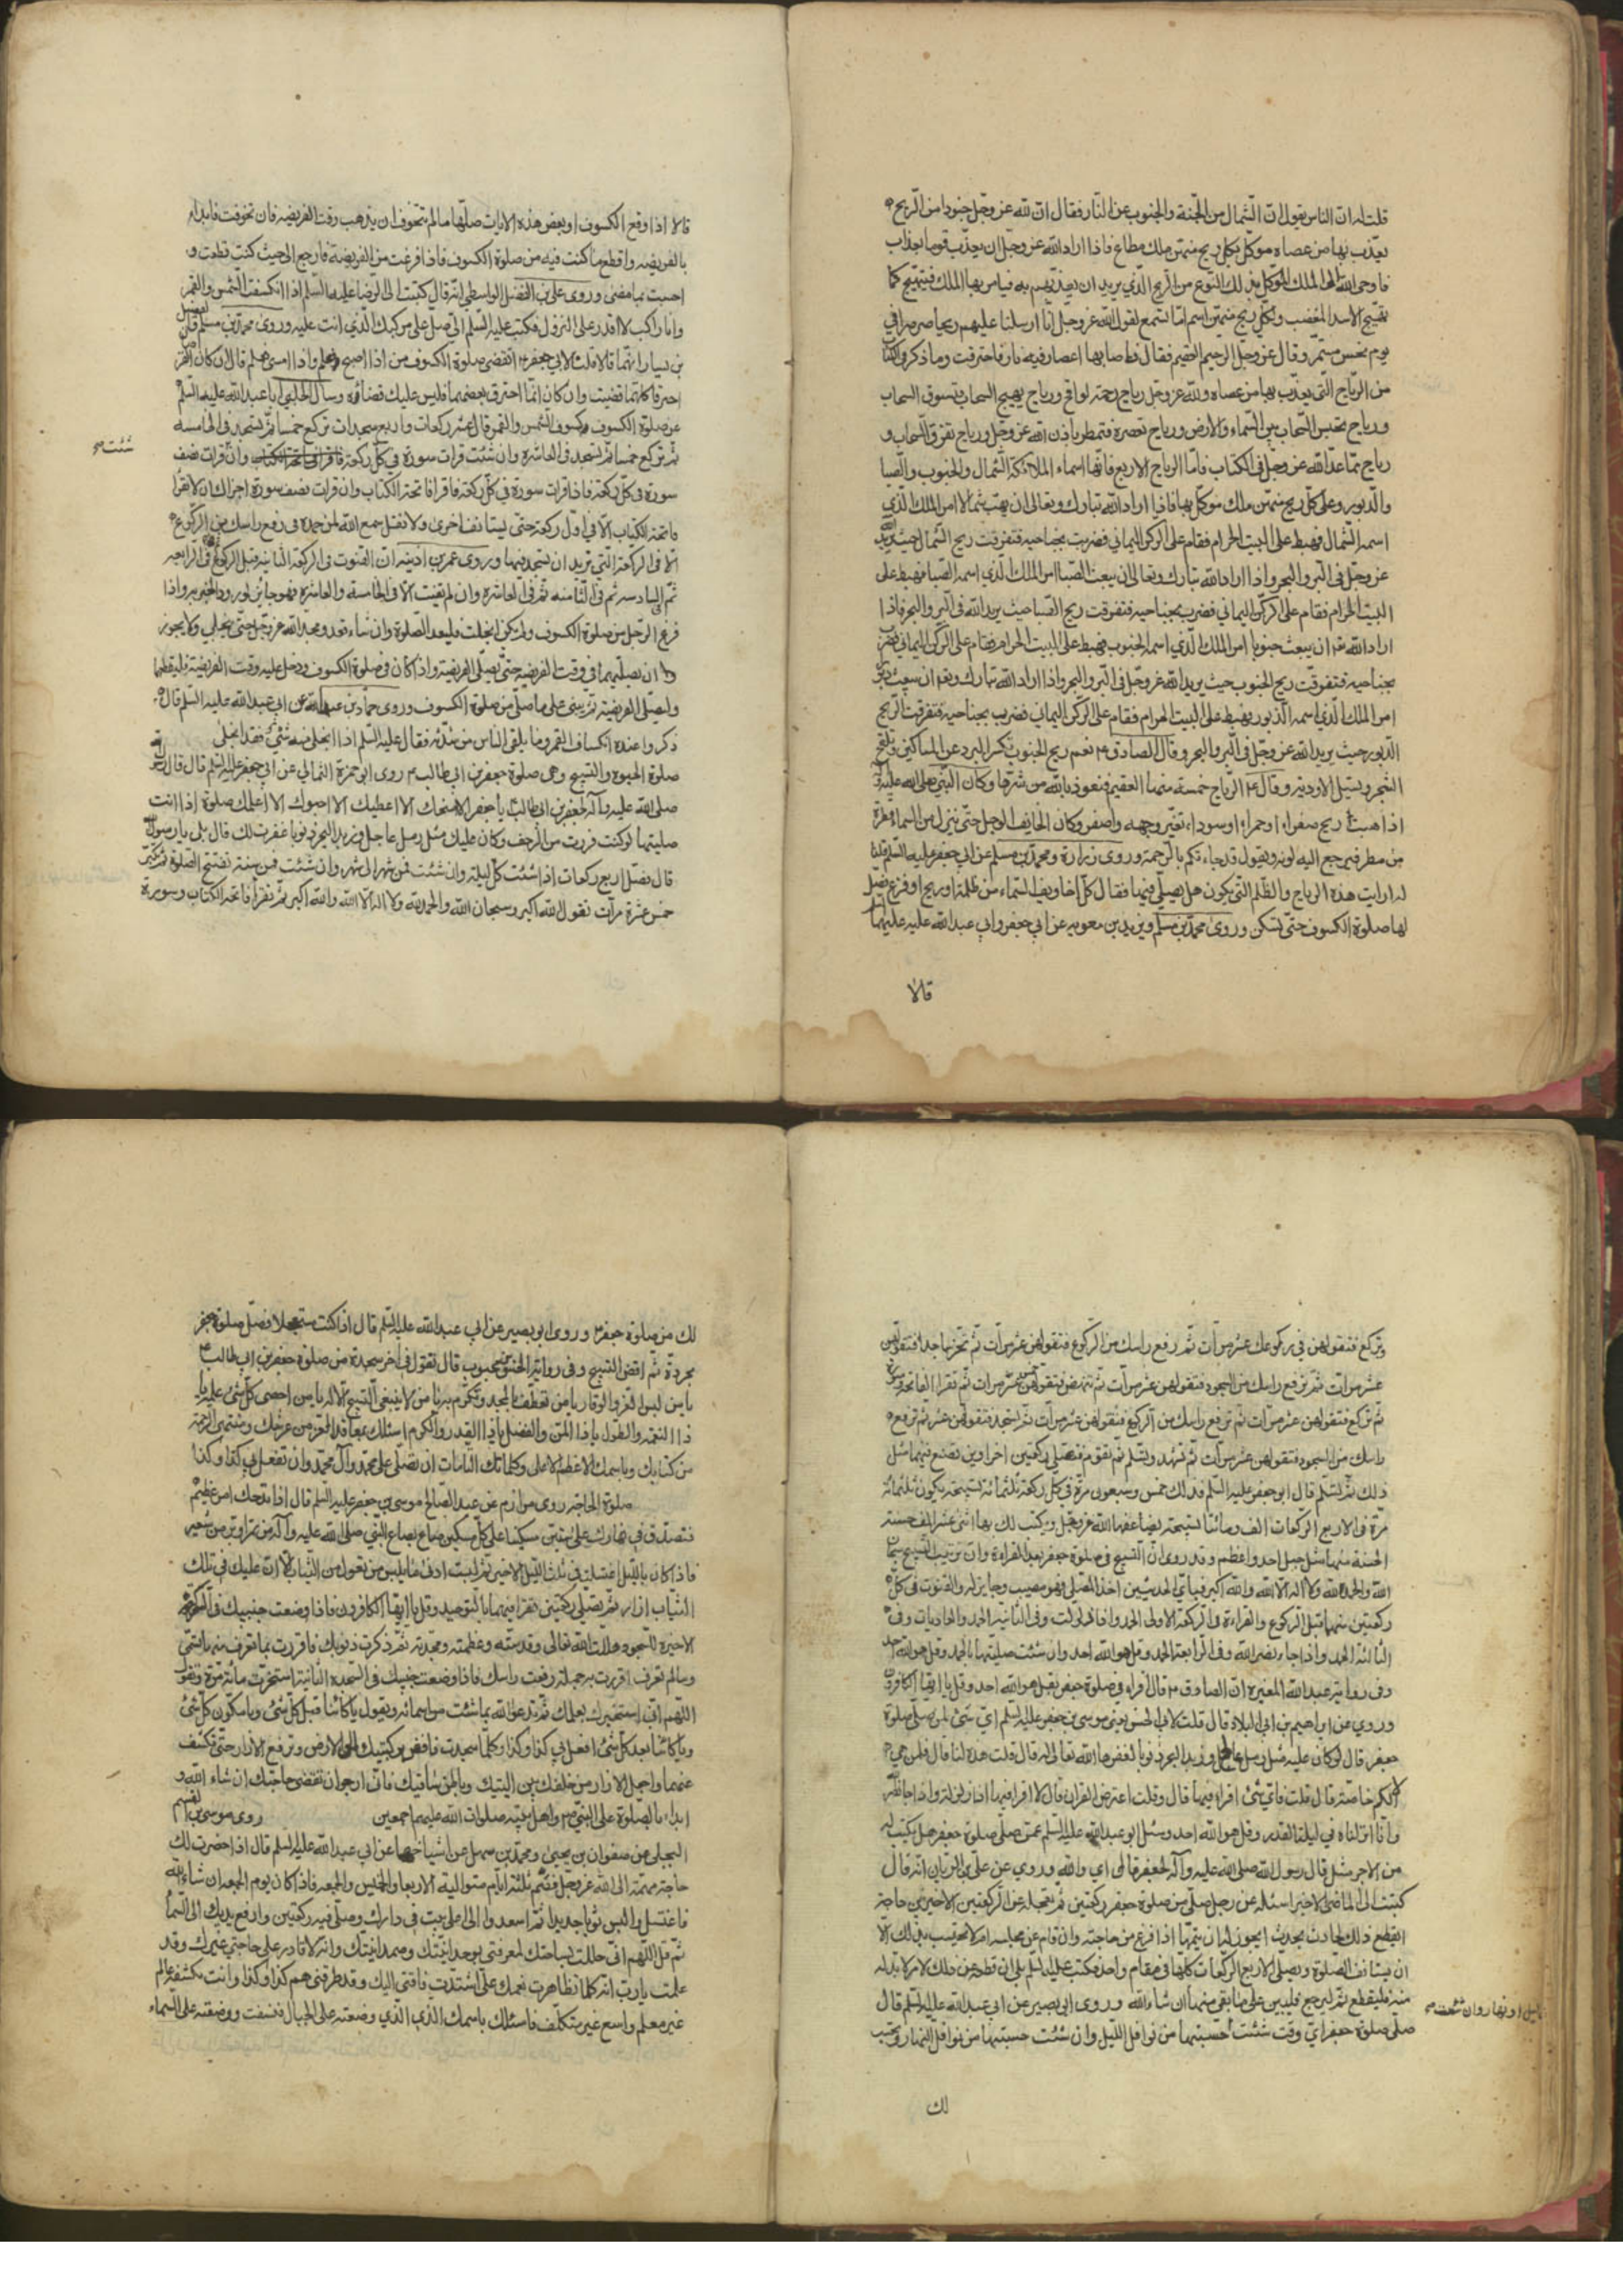 قلت له ان الناس يقول ان الشمال من الجنة والجنوب عن النار فقال ان لله عز وجل جنودا من الريح
يعذب بها من عصاه موكل بكل ريح منهن ملك مطاع فاذا اراد الله عز وجل ان يعذب قوما بعذاب
فاوحى الله الى الملك الموكل بذلك النوع من الريح الذي يريد ان يعذبهم به فيامر بها الملك فتهيج كما
تهيج الاسد المغضب ولكل ريح منهن اسم اما تسمع لقول الله عز وجل انا ارسلنا عليهم ريحا صرصرا في
يوم نحس مستمر وقال عز وجل الريح العقيم فقال فاصابها اعصار فيه نار فاحترقت وما ذكر في الكتاب
من الرياح التي يعذب بها من عصاه ولله عز وجل رياح رحمة لواقح ورياح يهيج السحاب فتسوق السحاب
ورياح تحبس السحاب بين السماء والارض ورياح تعصره فتمطر باذن الله عز وجل ورياح تفرق السحاب و
رياح مما عد الله عز وجل في الكتاب فاما الرياح الاربع فانها اسماء الملائكة الشمال والجنوب والصبا
والدبور وعلى كل ريح منهن ملك موكل بها فاذا اراد الله تبارك وتعالى ان يهب شمالا امر الملك الذي
اسمه الشمال فهبط على البيت الحرام فقام على الركن اليماني فضرب بجناحيه فتفرقت ريح الشمال حيث يريد الله
عز وجل في البر والبحر واذا اراد الله تبارك وتعالى ان يبعث الصبا امر الملك الذي اسمه الصبا فهبط على
البيت الحرام فقام على الركن اليماني فضرب بجناحيه فتفرقت ريح الصبا حيث يريد الله في البر والبحر فاذا
اراد الله ان يبعث جنوبا امر الملك الذي اسمه الجنوب فهبط على البيت الحرام فقام على الركن اليماني فضرب
بجناحيه فتفرقت ريح الجنوب حيث يريد الله عز وجل في البر والبحر واذا اراد الله تبارك وتعالى ان يبعث دبورا
امر الملك الذي اسمه الدبور فهبط على البيت الحرام فقام على الركن اليماني فضرب بجناحيه فتفرقت الريح
الدبور حيث يريد الله عز وجل في البر والبحر وقال الصادق ع نعم ريح الجنوب تكسر البرد عن المساكين وتلقح
الشجر وتسيل الاودية وقال ع الرياح خمسة منها العقيم فنعوذ بالله من شرها وكان النبي صلى الله عليه وآله
اذا هبت ريح صفراء او حمراء او سوداء تغير وجهه واصفر وكان الخايف الوجل حتى ينزل من السماء قطرة
من مطر فيرجع اليه لونه ويقول قد جاءتكم بالرحمة وروى زرارة ومحمد بن مسلم عن ابي جعفر عليه السلم قلنا
له ارايت هذه الرياح والظلم التي يكون هل يصلي فيها فقال كل اخاويف السماء من ظلمة او ريح او فزع فصل
لها صلوة الكسوف حتى تسكن وروى محمد بن مسلم وبريد بن معوية عن ابي جعفر وابي عبد الله عليهما
قالا
قالا اذا وقع الكسوف او بعض هذه الايات صلها ما لم تتخوف ان يذهب وقت الفريضة فان تخوفت فابدا
بالفريضة واقطع ما كنت فيه من صلوة الكسوف فاذا فرغت من الفريضة فارجع الى حيث كنت قطعت و
احتسب بما مضى وروى علي بن الفضل الواسطي انه قال كتبت الى الرضا عليه السلم اذا انكسفت الشمس والقمر
وانا راكب لا اقدر على النزول فكتب عليه السلم الي صل على مركبك الذي انت عليه وروى محمد بن مسلم والفضيل
بن يسار انهما قالا قلنا لابي جعفر ع اتقضى صلوة الكسوف من اذا اصبح فعلم واذا امسى فعلم قال ان كان القرصان
احترقا كلهما قضيت وان كان انما احترق بعضهما فليس عليك قضاؤه وسال الحلبي ابا عبد الله عليه السلم
عن صلوة الكسوف كسوف الشمس والقمر قال عشر ركعات واربع سجدات تركع خمسا ثم تسجد في الخامسة
ثم تركع خمسا ثم تسجد في العاشرة وان شئت قرات سورة في كل ركعة وان قرات نصف
شئت صح
سورة في كل ركعة فاذا قرات سورة في كل ركعة فاقرا فاتحة الكتاب وان قرات نصف سورة اجزاك ان لا تقرا
فاتحة الكتاب الا في اول ركعة حتى تستانف اخرى ولا تقل سمع الله لمن حمده في رفع راسك من الركوع
الا في الركعة التي تريد ان تسجد فيها وروى عمر بن اذينة ان القنوت في الركعة الثانية قبل الركوع ثم في الرابعة
ثم في السادسة ثم في الثامنة ثم في العاشرة وان لم تقنت الا في الخامسة والعاشرة فهو جايز لورود الخبر به واذا
فرغ الرجل من صلوة الكسوف ولم تكن انجلت فليعد الصلوة وان شاء قعد ومجد الله عز وجل حتى ينجلي ولا يجوز
ان يصليهما في وقت الفريضة حتى يصلي الفريضة واذا كان في صلوة الكسوف ودخل عليه وقت الفريضة فليقطعها
وليصلي الفريضة ثم يبني على ما صلى من صلوة الكسوف وروى حماد بن عثمان عن ابي عبد الله عليه السلم قال
ذكروا عنده انكساف القمر وما يلقى الناس من شدته فقال عليه السلم اذا انجلى منه شئ فقد انجلى
صلوة الحبوة والتسبيح وهي صلوة جعفر بن ابي طالب ع روى ابو حمزة الثمالي عن ابي جعفر عليه السلم قال قال رسول الله
صلى الله عليه وآله لجعفر بن ابي طالب يا جعفر الا امنحك الا اعطيك الا احبوك الا اعلمك صلوة اذا انت
صليتها لو كنت فررت من الزحف وكان عليك مثل رمل عالج وزبد البحر ذنوبا غفرت لك قال بلى يا رسول الله
قال تصلي اربع ركعات اذا شئت كل ليلة وان شئت فمن شهر الى شهر وان شئت فمن سنة تفتتح الصلوة ثم تكبر
خمس عشرة مرات تقول الله اكبر وسبحان الله والحمد لله ولا اله الا الله والله اكبر ثم تقرا فاتحة الكتاب وسورة
وتركع فتقولهن في ركوعك عشر مرات ثم رفع راسك من الركوع فتقولهن عشر مرات ثم تخر ساجدا فتقولهن
عشر مرات ثم ترفع راسك من السجود فتقولهن عشر مرات ثم تنهض فتقولهن خمس عشر مرات ثم تقرا الفاتحة وسورة
ثم تركع فتقولهن عشر مرات ثم ترفع راسك من الركوع فتقولهن عشر مرات ثم تسجد فتقولهن عشر ثم ترفع
راسك من السجود فتقولهن عشر مرات ثم تشهد وتسلم ثم تقوم فتصلي ركعتين اخراوين تصنع فيهما مثل
ذلك ثم تسلم قال ابو جعفر عليه السلم فذلك خمس وسبعون مرة في كل ركعة ثلثمائة تسبيحة يكون ثلثمائة
مرة في الاربع الركعات الف ومائتا تسبيحة يضاعفها الله عز وجل ويكتب لك بها اثني عشر الف حسنة
الحسنة منها مثل جبل احد واعظم وقد روى ان التسبيح في صلوة جعفر بعد القراءة وان ترتيب التسبيح سبحان
الله والحمد لله ولا اله الا الله والله اكبر فباي الحديثين اخذ المصلي فهو مصيب وجايز له والقنوت في كل
ركعتين منهما قبل الركوع والقراءة في الركعة الاولى الحمد واذا زلزلت وفي الثانية الحمد والعاديات وفي
الثالثة الحمد واذا جاء نصر الله وفي الرابعة الحمد وقل هو الله احد وان شئت صليتها بالحمد وقل هو الله احد
وفي رواية عبد الله المغيرة ان الصادق ع قال اقراء في صلوة جعفر بقل هو الله احد وقل يا ايها الكافرون
وروي عن ابراهيم بن ابي البلاد قال قلت لابي الحسن يعني موسى بن جعفر عليه السلم اي شئ لمن صلى صلوة
جعفر قال لو كان عليه مثل رمل عالج وزبد البحر ذنوبا لغفرها الله تعالى له قال قلت هذه لنا قال فلمن هي
الا لكم خاصة قال قلت فاي شئ اقراء فيها قال وقلت اعترض القران قال لا اقرا فيها اذا زلزلت واذا جاء نصر الله
وانا انزلناه في ليلة القدر وقل هو الله احد وسئل ابو عبد الله عليه السلم عمن صلى صلوة جعفر هل يكتب له
من الاجر مثل قال رسول الله صلى الله عليه وآله لجعفر قال اي والله وروي عن علي بن الريان انه قال
كتبت الى الماضي الاخير اسئله عن رجل صلى من صلوة جعفر ركعتين ثم تعجله عن الركعتين الاخيرتين حاجة
ايقطع ذلك لحادث يحدث ايجوز له ان يتمها اذا فرغ من حاجته وان قام عن مجلسه ام لا تحتسب بذلك الا
ان يستانف الصلوة ويصلي الاربع الركعات كلها في مقام واحد فكتب عليه السلم بلى ان قطعه عن ذلك امر لا بد له
منه فليقطع ثم ليرجع فليبن على ما بقي منها ان شاء الله وروى ابو بصير عن ابي عبد الله عليه السلم قال
بالليل او نهار وان شئت صح
صلى صلوة جعفر اي وقت شئت حسبتها من نوافل الليل وان شئت حسبتها من نوافل النهار وتحتسب
لك
لك من صلوة جعفر وروى ابو بصير عن ابي عبد الله عليه السلم قال اذا كنت مستعجلا فصل صلوة جعفر
مجردة ثم اقض التسبيح وفي رواية الحسن بن محبوب قال تقول في اخر سجدة من صلوة جعفر بن ابي طالب
يا من لبس العز والوقار يا من تعطف بالمجد وتكرم به يا من لا ينبغي التسبيح الا له يا من احصى كل شئ علمه يا
ذا النعمة والطول يا ذا المن والفضل يا ذا القدرة والكرم اسئلك بمعاقد العز من عرشك ومنتهى الرحمة
من كتابك وباسمك الاعظم الاعلى وكلماتك التامات ان تصلي على محمد وآل محمد وان تفعل بي كذا وكذا
صلوة الحاجة روى مرازم عن عبد الصالح موسى بن جعفر عليه السلم قال اذا فدحك امر عظيم
فتصدق في نهارك على ستين مسكينا على كل مسكين صاع بصاع النبي صلى الله عليه وآله من تمر او بر من شعير
فاذا كان بالليل اغتسلت في ثلث الليل الاخير ثم لبست ادنى ما يلبس من تعول من الثياب الا ان عليك في تلك
الثياب ازار ثم تصلي ركعتين تقرا فيهما بالتوحيد وقل يا ايها الكافرون فاذا وضعت جنبيك في الركعة
الاخيرة للسجود هللت الله تعالى وقدسته وعظمته ومجدته ثم ذكرت ذنوبك فاقررت بما تعرف منها تسمي
وما لم تعرف اقررت به جملة رفعت راسك فاذا وضعت جبينك في السجدة الثانية استخرت مائة مرة وتقول
اللهم اني استخيرك بعلمك ثم تدعو الله بما شئت من اسمائه وتقول يا كائنا قبل كل شئ ويا مكون كل شئ
ويا كائنا بعد كل شئ افعل بي كذا وكذا وكلما سجدت فافض بركبتيك الى الارض وترفع الازار حتى تكشف
عنهما واجعل الازار من خلفك بين اليتيك وباطن ساقيك فاني ارجو ان تقضى حاجتك ان شاء الله و
ابداء بالصلوة على النبي ص واهل بيته صلوات الله عليهم اجمعين روى موسى بن القسم
البجلي عن صفوان بن يحيى ومحمد بن سهل عن اشياخهما عن ابي عبد الله عليه السلم قال اذا حضرت لك
حاجة مهمة الى الله عز وجل فصم ثلثة ايام متوالية الاربعا والخميس والجمعة فاذا كان يوم الجمعة ان شاء الله
فاغتسل والبس ثوبا جديدا ثم اصعد الى اعلى بيت في دارك وصلي فيه ركعتين وارفع يديك الى السماء
ثم قل اللهم اني حللت بساحتك لمعرفتي بوحدانيتك وصمدانيتك وانه لا قادر على حاجتي غيرك وقد
علمت يا رب انه كلما تظاهرت نعمك علي اشتدت فاقتي اليك وقد طرقني هم كذا وكذا وانت بكشفه عالم
غير معلم واسع غير متكلف فاسئلك باسمك الذي الذي وضعته على الجبال فنسفت ووضعته على السماء